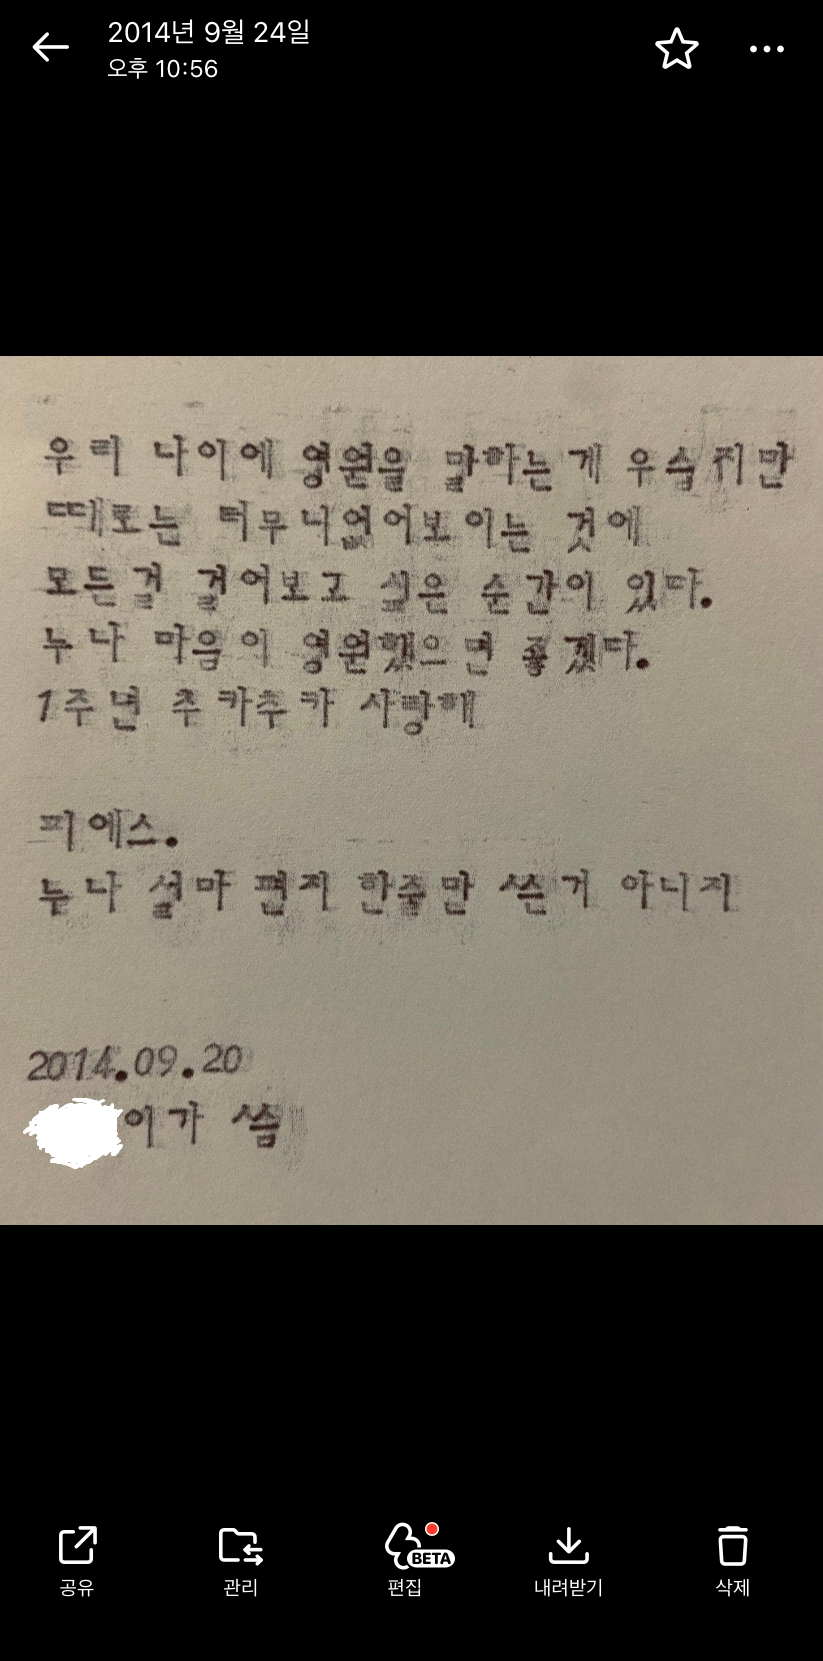 2014년 9월 24일
오후 10:56
우리 나이에 영원을 말하는게 우습지만
때로는 터무니없어보이는 것에
모든걸 걸어보고 싶은 순간이 있다.
누나 마음이 영원했으면 좋겠다.
1주년 추카추카 사랑해
피에스.
누나 설마 편지 한줄만 쓴거 아니지
2014.09.20
이가 씀
공유
관리
BETA
편집
내려받기
삭제